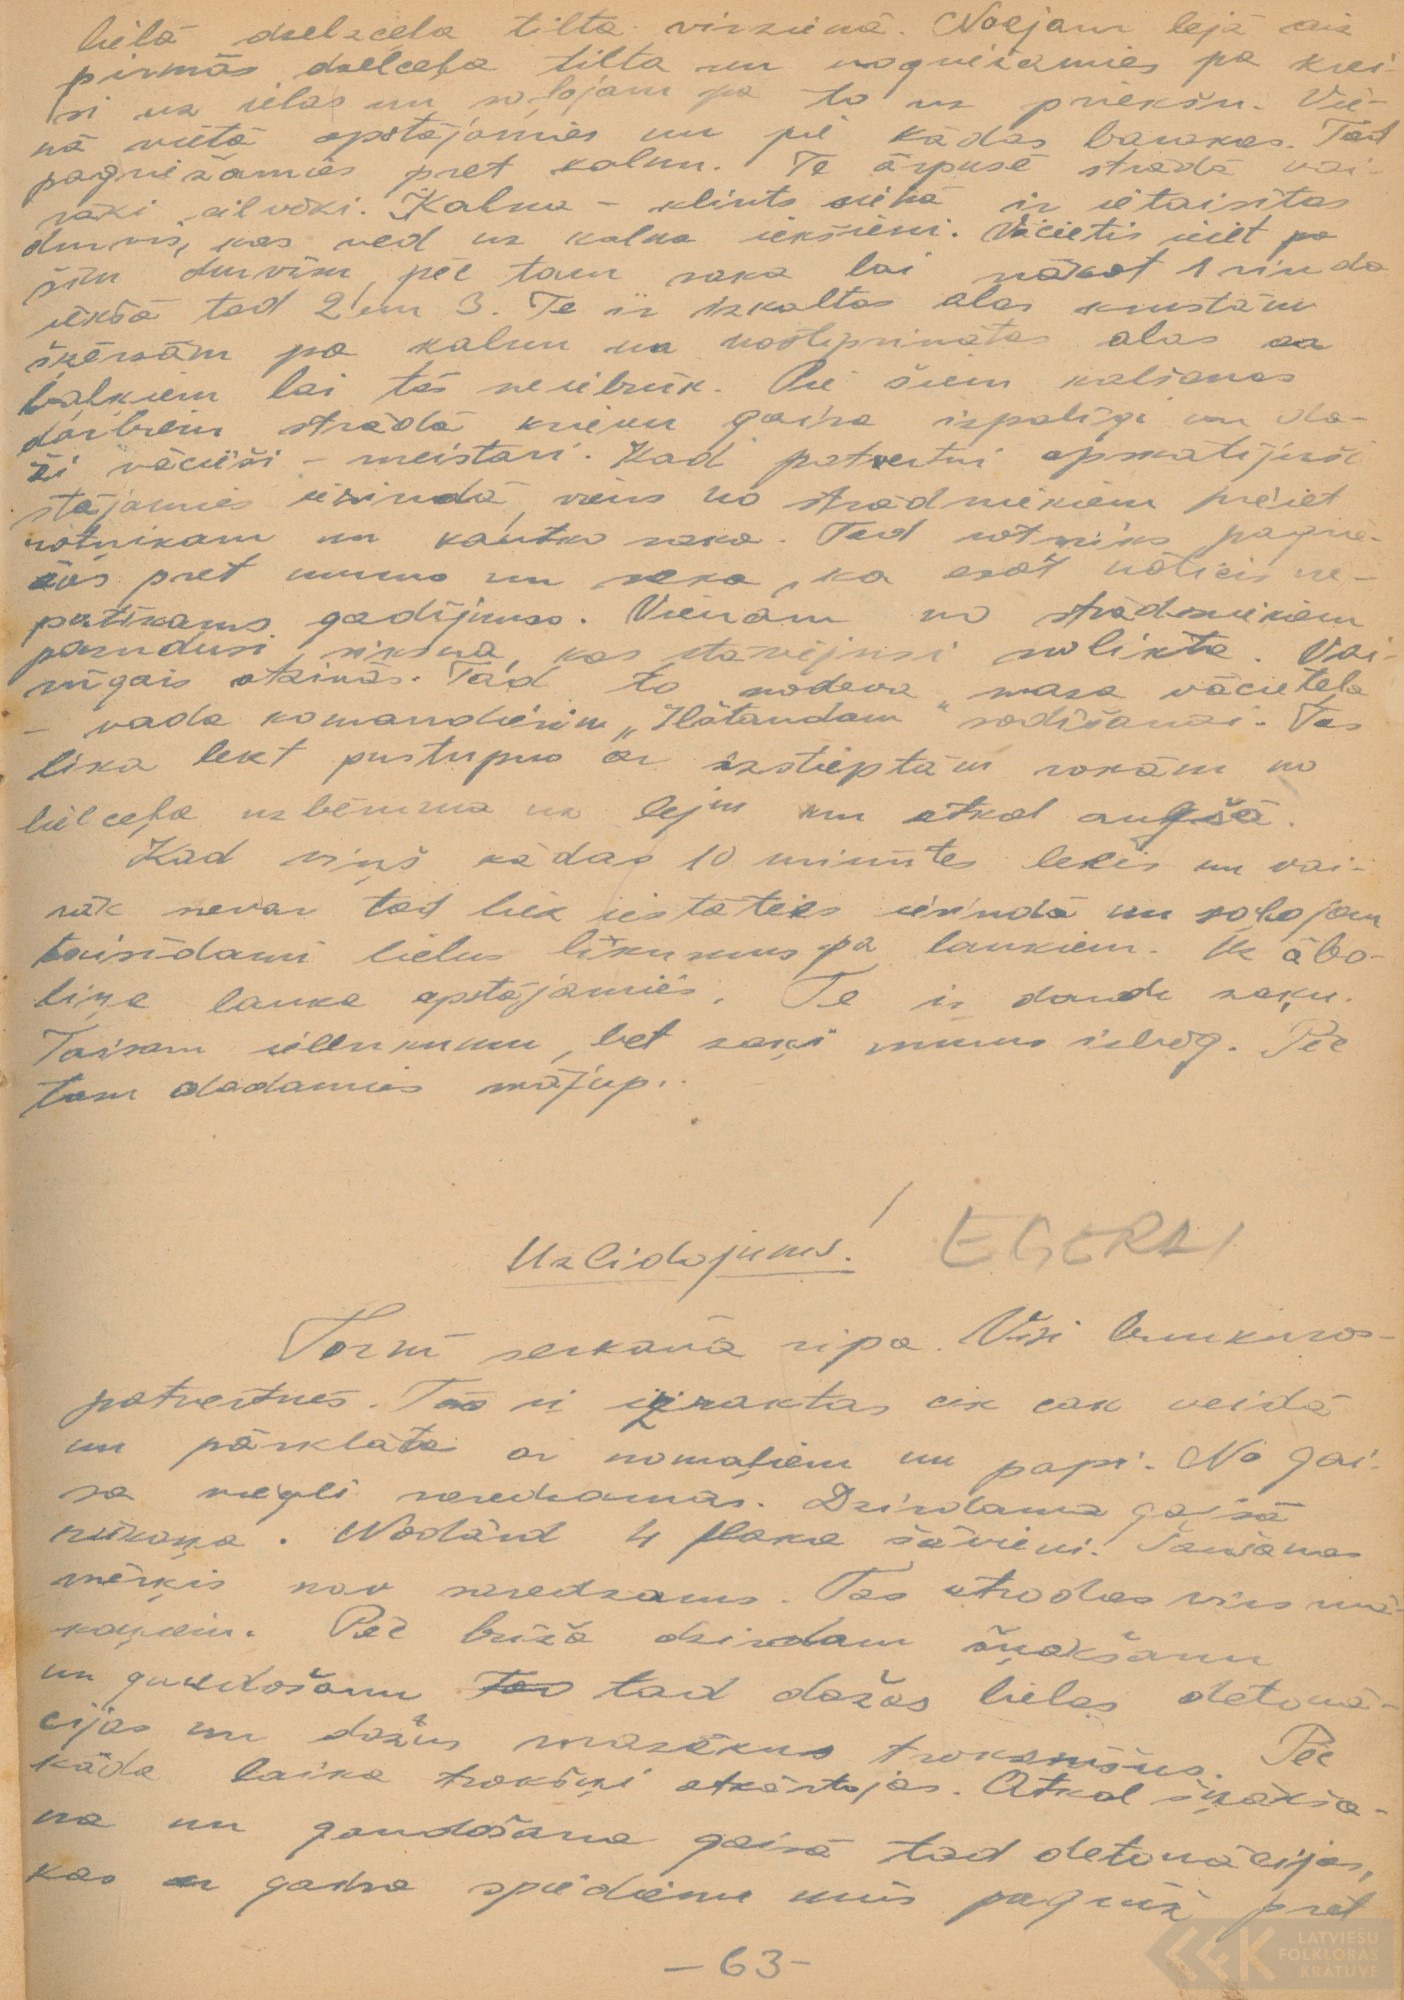 lielā dzelzceļa tilta virzienā. Noejam lejā aiz
pirmās dzelceļa tilta un nogriežamies pa krei-
si uz ielas un soļojam pa to uz priekšu. Vie-
nā vietā apstājamies un pie kādas barakas. Tad
pagriežamies pret kalnu. Te ārpusē strādā vai-
rāki cilvēki. Kalna - klints sienā ir ietaisītas
durvis, kas ved uz kalna iekšieni. Vācietis ieiet pa
šīm durvīm, pēc tam saka lai nākot 1 rinda
iekšā tad 2 un 3. Te ir izkaltas alas krustām
šķērsām pa kalnu un nostiprinātas alas
balkiem lai tās neiebrūk. Pie šiem kalšanas
darbiem strādā krievu gaisa izpalīgi un da-
ži vācieši - meistari. Kad patvertni apskatījuši
stājamies ierindā, viens no strādniekiem pieiet
rotnikam un kautko saka. Tad rotniks pagrie-
žas pret mums un saka, ka esot noticis ne-
patīkams gadījums. Vienam no strādniekiem
pazudusi siksna, kas stāvējusi nolikta. Vai-
nīgais atainās. Tad to nodeva maza vācieteļa
- vada komandierim „Hātandam" sodīšanai. Tas
lika lekt pustupus ar izstieptām rokām no
lielceļa uzbēruma uz leju un atkal augšā.
Kad viņš kādas 10 minūtes lekis un vai-
rāk nevar tad liek iestāties ierindā un soļojam
taisīdami lielus līkumus pa laukiem. Uz ābo-
liņa lauka apstājamies. Te ir daudz zaķu.
Taisam ielenkumu, bet zaķi mums izbēg. Pēc
tam dodamies mājup.
Uzlidojums! EGERĀ!
Tornī serkanā ripa. Visi bunkuros-
patvertnēs. Tās ir izraktas cik cak veidā
un pārklātas ar nomaļiem un papi. No gai-
sa viegli saredzamas. Dzirdama gaisā
rūkoņa. Nodārd 4 flaka šāvieni. Šaušanas
mērķis nav saredzams. Tas atrodas virs mā-
koņiem. Pēc brīža dzirdam šņakšanu
un gaudošanu tad dažas lielas detonā-
cijas un dažus mazākus trokšņus. Pēc
kāda laika trokšņi atkārtojas. Atkal šņākša-
na un gaudošana gaisā tad detonācijas,
kas ar gaisa spiedienu mūs pagrūž pret
- 63 -
LATVIEŠU
FOLKLORAS
KRĀTUVE